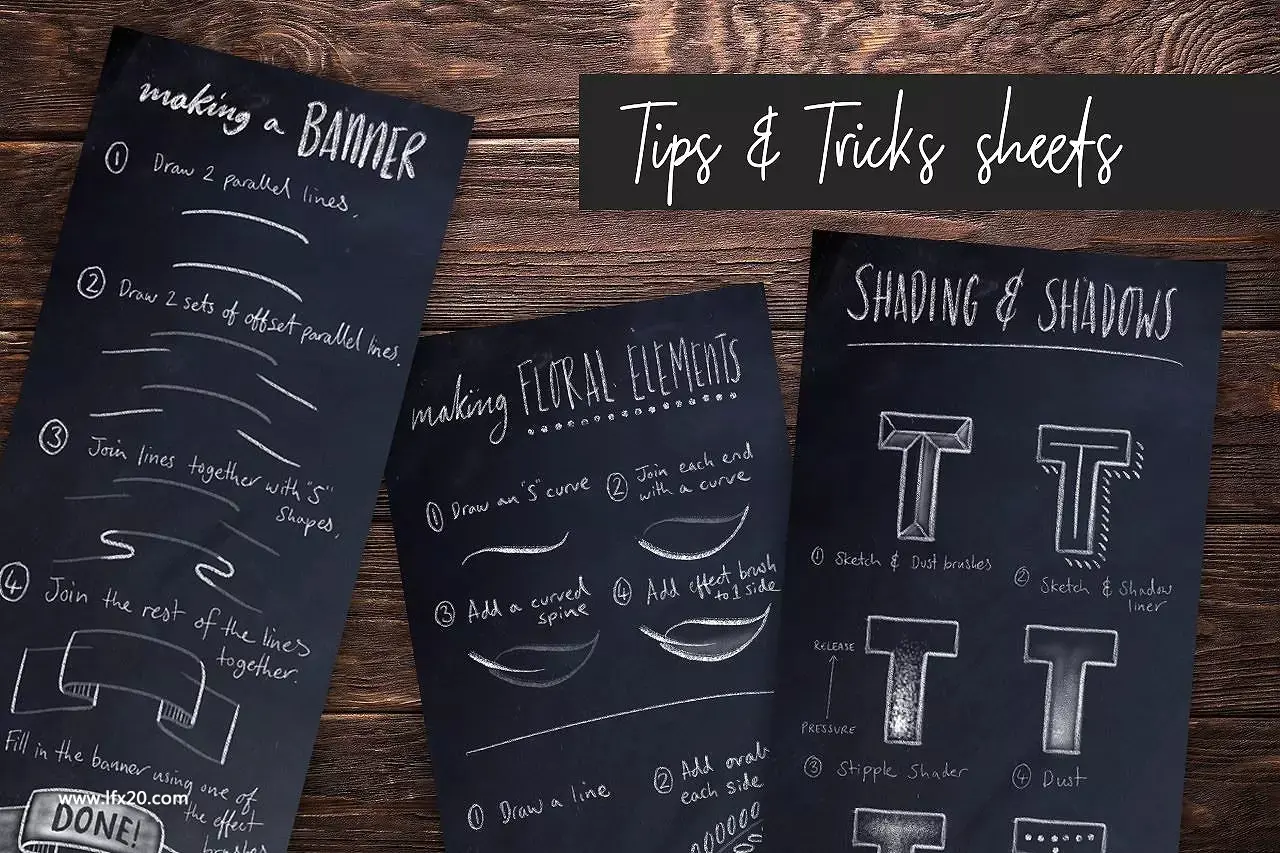 Tips & Tricks sheets
making a BANNER
① Draw 2 parallel lines.
② Draw 2 sets of offset parallel lines.
③ Join lines together with "S"
shapes.
④ Join the rest of the lines
together.
Fill in the banner using one of
the effect
brushes
DONE!
www.lfx20.com
making FLORAL ELEMENTS
① Draw an "S" curve
② Join each end
with a curve
③ Add a curved
spine
④ Add effect brush
to 1 side
① Draw a line
② Add ovals
each side
SHADING & SHADOWS
① Sketch & Dust brushes
② Sketch & Shadow
liner
RELEASE
PRESSURE
③ Stipple Shader
④ Dust